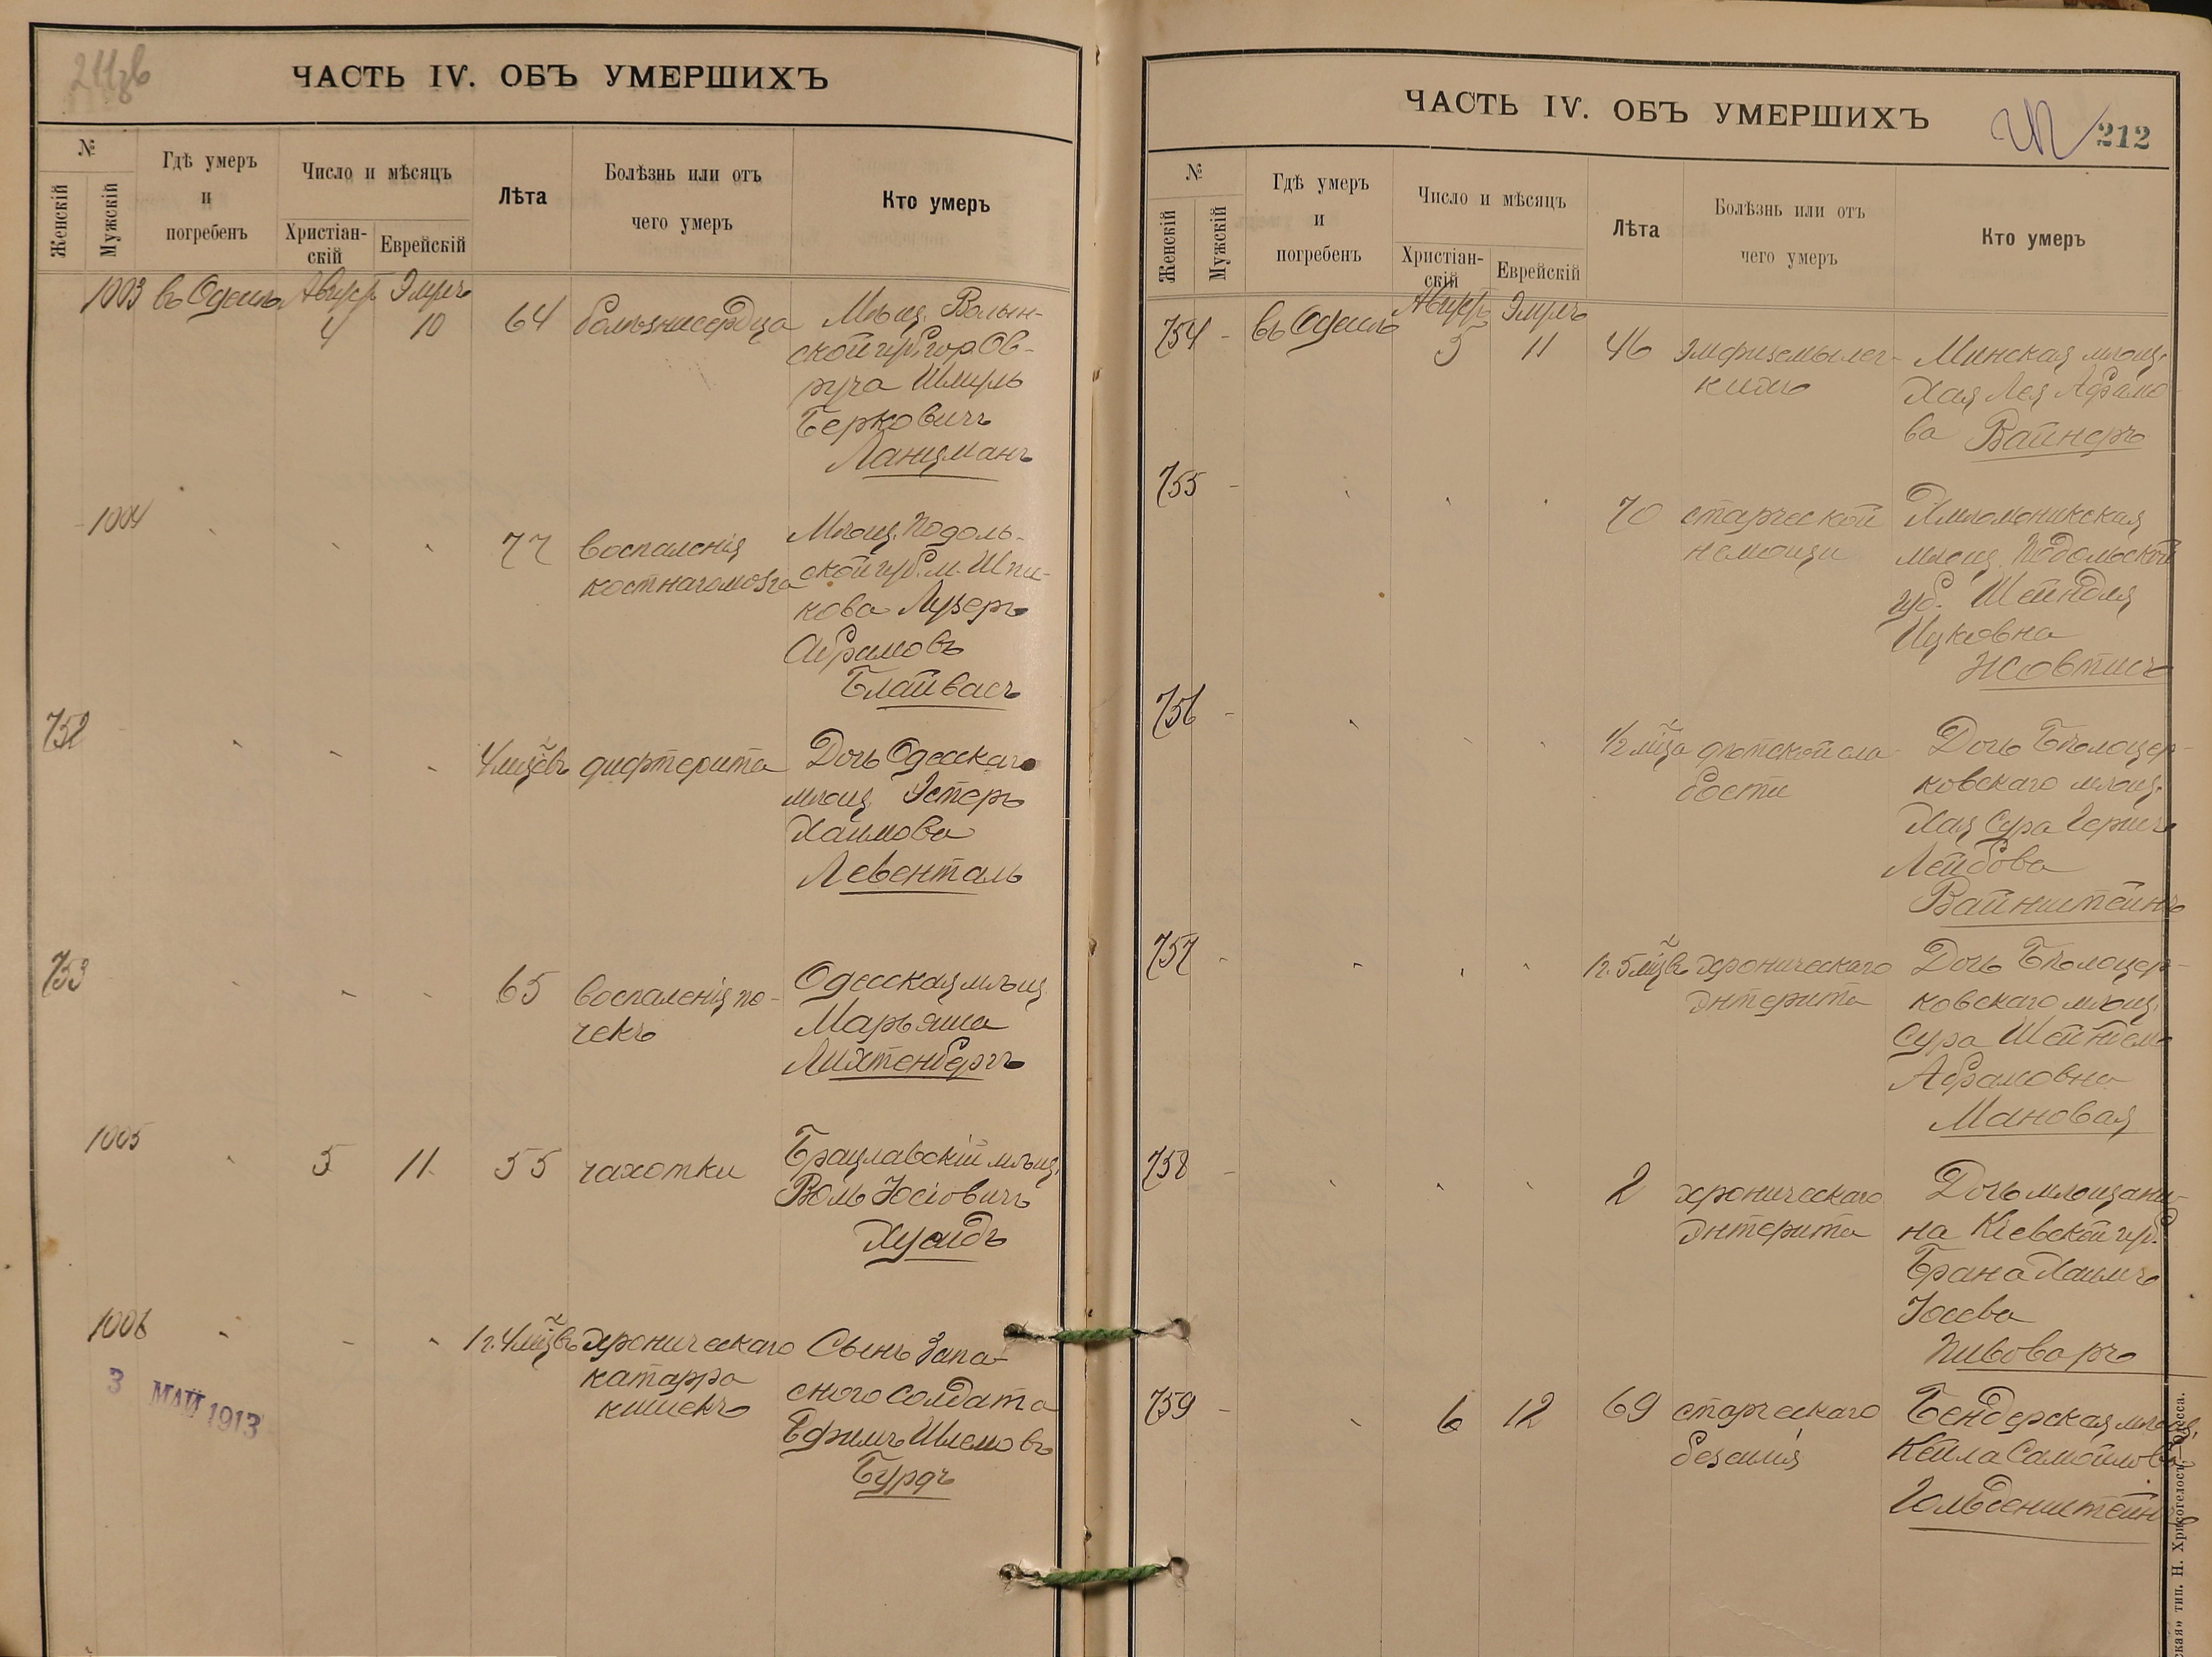 211об
ЧАСТЬ IV. ОБЪ УМЕРШИХЪ
№
Женскій
Мужскій
Гдѣ умеръ
и
погребенъ
Число и мѣсяцъ
Христіан-
скій
Еврейскій
Лѣта
Болѣзнь или отъ
чего умеръ
Кто умеръ
1003 въ Одессѣ Августъ Элулъ
4 10 64 болѣзни сердца Мѣщ. Волын-
ской губ. гор. Ов-
руча Шмуль
Берковичъ
Ланцманъ
1004
77 воспаленія Мѣщ. Подоль-
костнаго мозга ской губ. м. Шпи-
кова Лузеръ
Абрамовъ
Блайвасъ
752
4 мцѣвъ дифтерита Дочь Одесскаго
мѣщ. Эстеръ
Хаимова
Левенталь
753
65 воспаленія по- Одесская мѣщ.
чекъ Марьяша
Лихтенбергъ
1005
5 11 55 чахотки Брацлавскій мѣщ.
Воль Іосіовичъ
Хуаидъ
1006
1 г. 4 мцѣвъ хроническаго Сынъ Запа-
катарра снаго солдата
кишекъ Ефимъ Шлемовъ
Бурдъ
3 МАЙ 1913
ЧАСТЬ IV. ОБЪ УМЕРШИХЪ
212
№
Женскій
Мужскій
Гдѣ умеръ
и
погребенъ
Число и мѣсяцъ
Христіан-
скій
Еврейскій
Лѣта
Болѣзнь или отъ
чего умеръ
Кто умеръ
754 - въ Одессѣ Августъ Элулъ
5 11 46 эмфиземы лег- Минская мѣщ.
кихъ Хая Лея Абрамо
ва Вайнеръ
755 -
70 старческой Хмѣлоникская
немощи мѣщ. Подольской
губ. Шейндля
Ицковна
Жовтисъ
756 -
1/2 мца дѣтской сла Дочь Бѣлоцер-
бости ковскаго мѣщ.
Хая Сура Гершъ
Лейбова
Вайнштейнъ
757 -
1 г. 5 мцвъ хроническаго Дочь Бѣлоцер-
энтерита ковскаго мѣщ.
Сура Шейндель
Абрамовна
Мановая
758 -
2 хроническаго Дочь мѣщани-
энтерита на Кіевской губ.
Брана Хаимъ
Іосева
Пивоваръ
759 - 6 12 69 старческаго Бендерская мѣщ.
безсилія Кейла Самойлова
Гольденштейнъ
ская» тип. Н. Хрисогелосъ, Одесса.